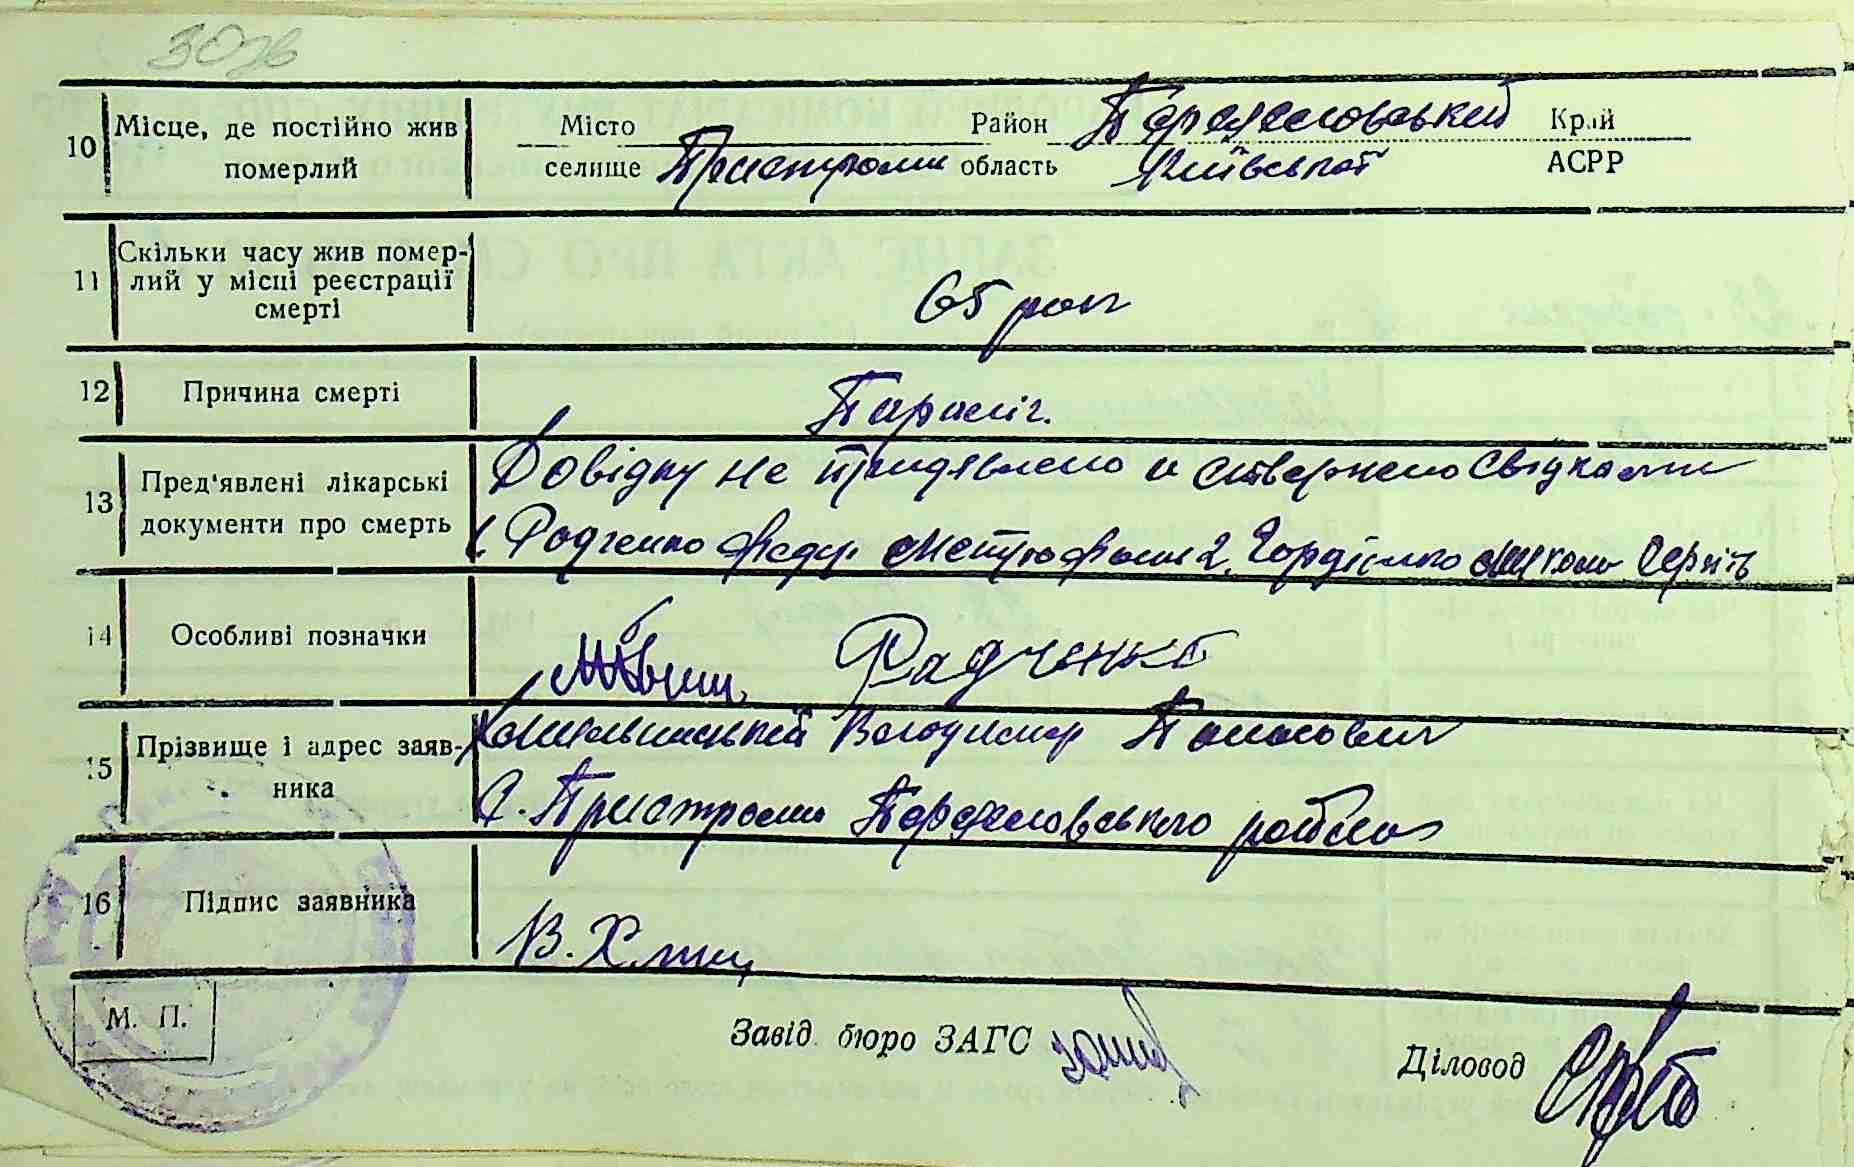 30зв
10 Місце, де постійно жив померлий
Місто
селище Пристроми
Район Переяславський
область Київської
Край
АСРР
11 Скільки часу жив помер-
лий у місці реєстрації
смерті
65 рок
12 Причина смерті
Параліч.
13 Пред'явлені лікарські
документи про смерть
Довідку не предявлено и ствержено свідками
1. Радченко Федір 2. Гордієнко Микола
14 Особливі позначки
Радченко
15 Прізвище і адрес заяв-
ника
Володимир Панасович
С. Пристроми Переяславського району
16 Підпис заявника
М. П.
Завід. бюро ЗАГС
Діловод